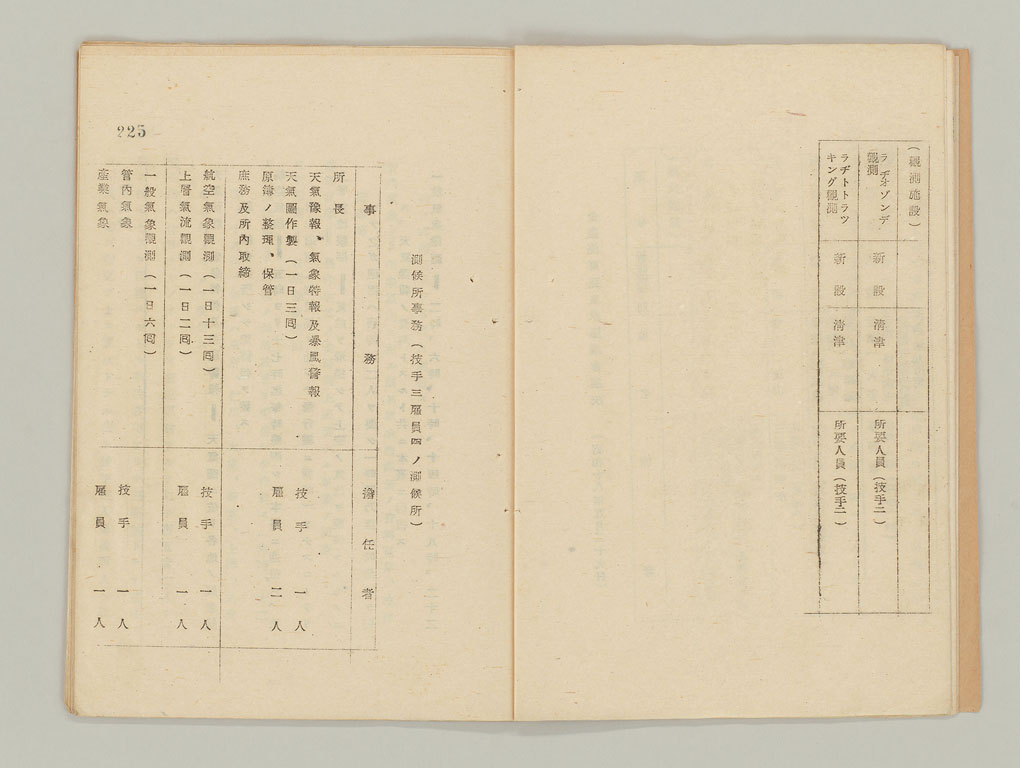 (觀測施設)
ラヂオゾンデ觀測 新設 淸津 所要人員(技手二)
ラヂトトラツキング觀測 新設 淸津 所要人員(技手二)
測候所事務(技手三雇員四ノ測候所)
事務 擔任者
所長
天氣豫報、氣象特報及暴風警報 技手 一人
天氣圖作製(一日三囘) 雇員 二人
原簿ノ整理、保管
庶務及所內取締
航空氣象觀測(一日十三囘) 技手 一人
上層氣流觀測(一日二囘) 雇員 一人
一般氣象觀測(一日六囘)
管內氣象 技手 一人
產業氣象 雇員 一人
225